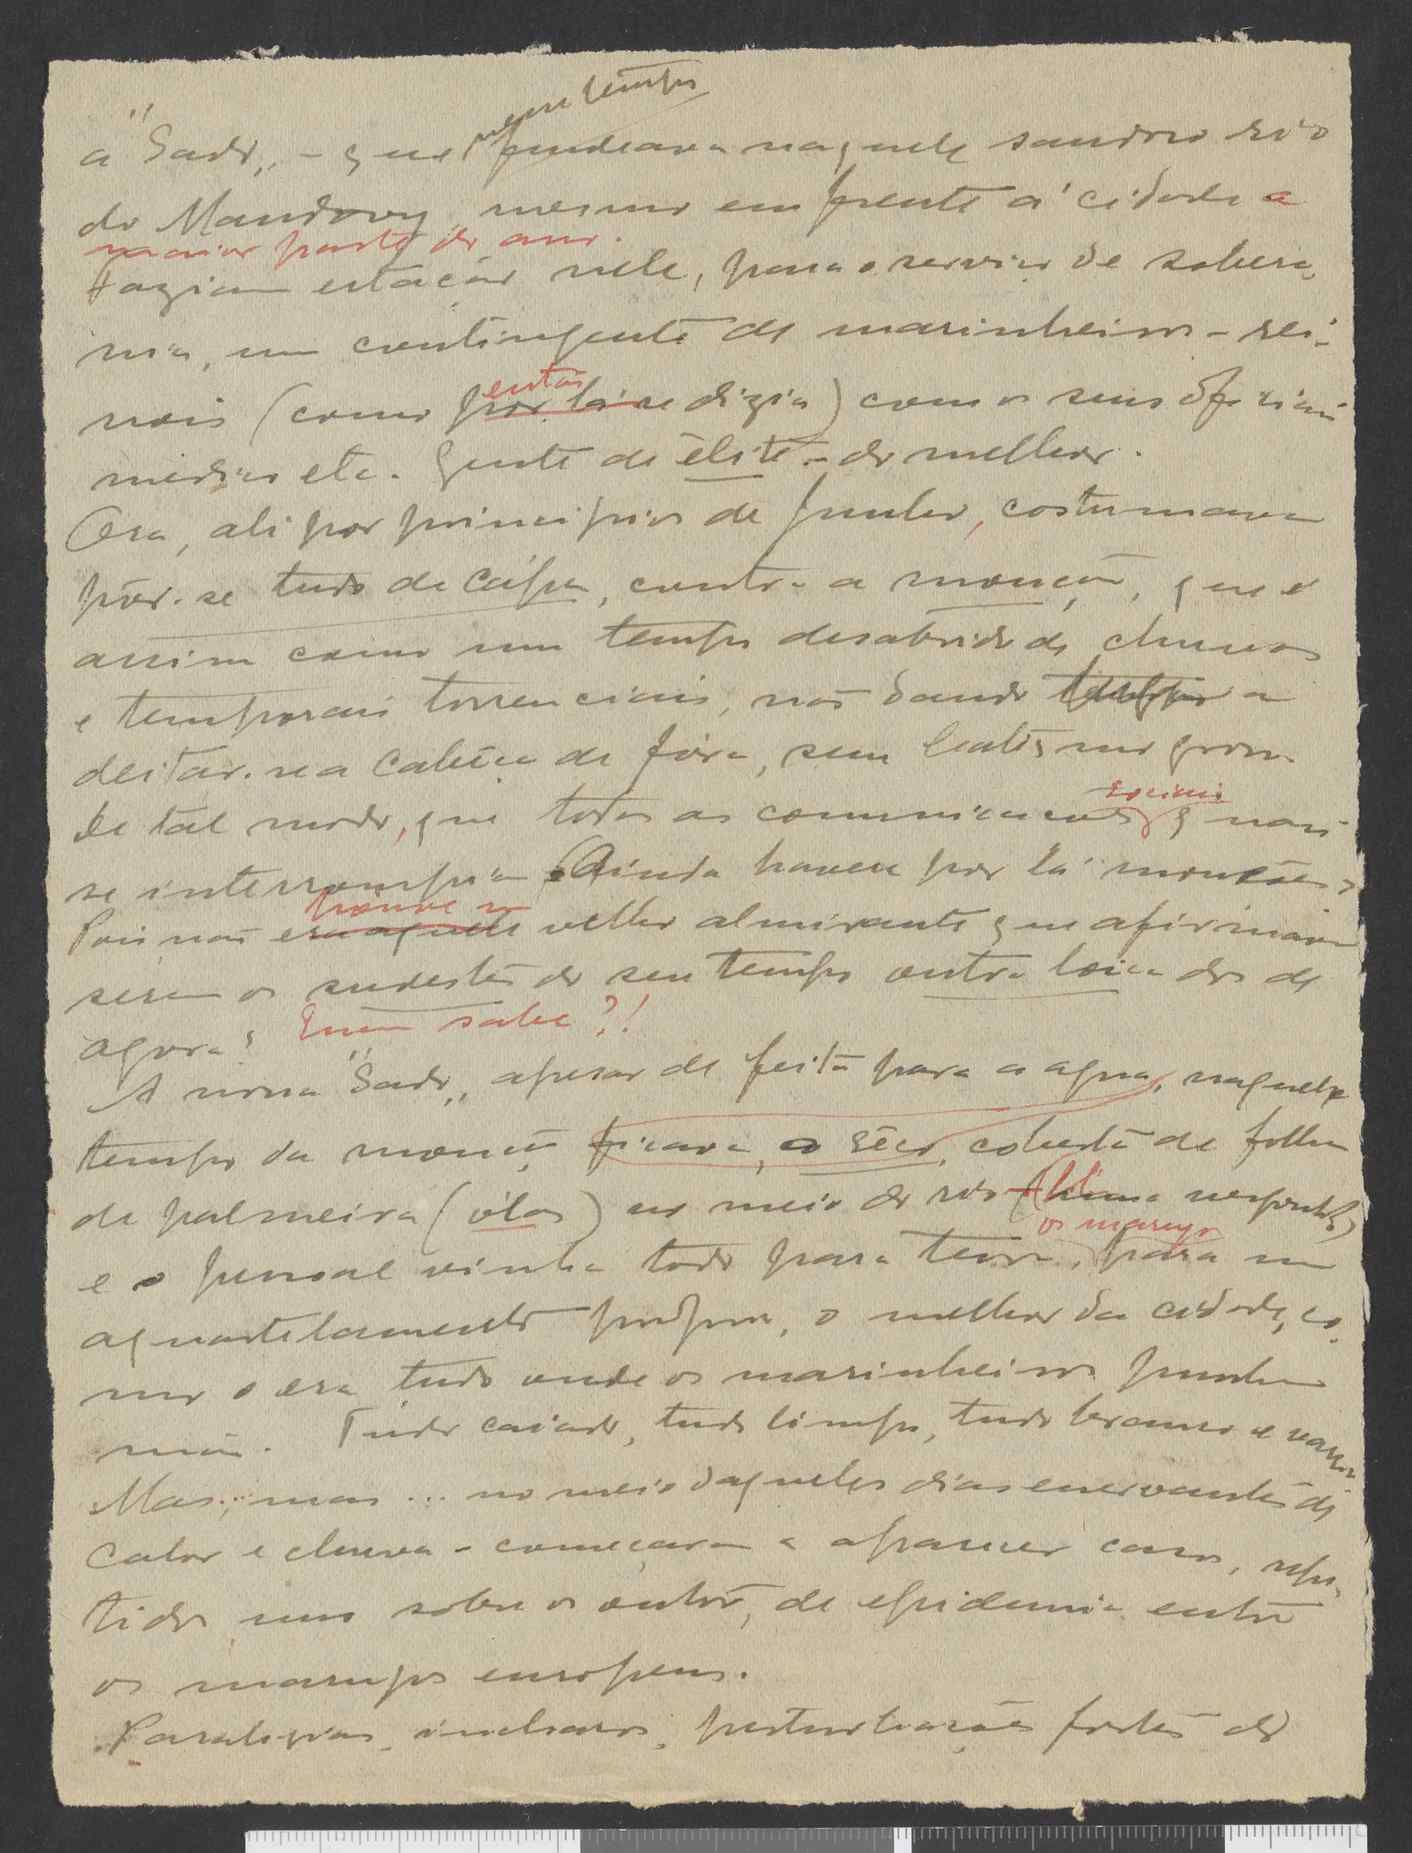 nesse tempo
a "Sado„ - que fundeava naquele saudoso rio
do Mandovy, mesmo em frente á cidade a
maior parte do ano.
Faziam estação nele, para o serviço de sobera-
nia, um contingente de marinheiros - rei-
então
nois (como por lá se dizia) com os seus oficiais
medicos etc. Gente de élite - do melhor.
Ora, ali por principios de Junho, costumava
pôr-se tudo de capa, contra a monção, que é
assim como um tempo desabrido de chuvas
e temporais torrenciais, não dando tempo a
deitar-se a cabeça de fóra, sem
De tal modo, que todas as comunicações quasi
se interrompiam. Ainda haverá por lá monções?
houve um
Pois não era aquele velho almirante que afirmava
serem os sudestes do seu tempo outra loiça dos de
agora? Quem sabe?!
A nossa "Sado„, apesar de feita para a agua, naquele
tempo da monção ficava, a sêco, coberta de folha
de palmeira (ólas) no meio do rio
os marujos
e o pessoal vinha todo para terra, para um
aquartelamento proprio, o melhor da cidade, co-
mo o era tudo onde os marinheiros punham
mão. Tudo caiado, tudo limpo, tudo branco e
Mas, mas... no meio daqueles dias enervantes de
calor e chuva - começaram a aparecer casos, repe-
tidos uns sobre os outros, de epidemia entre
os marujos europeus.
Paralesias, inchaços, perturbações fortes do